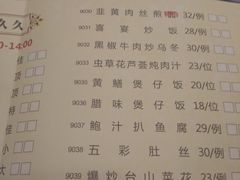 久久
0-14:00
佳
顶
顶
特
佳
小
大
9030 韭黄肉丝煎 32/例
9031 喜宴炒饭 28/例
9032 黑椒牛肉炒乌冬 30/例
9033 虫草花芦荟炖肉汁 23/位
9035 黄鳝煲仔饭 20/位
9036 腊味煲仔饭 18/位
9037 鲍汁扒鱼腐 29/例
9038 五彩肚丝 30/例
9039 爆炒台山菜花 23/例